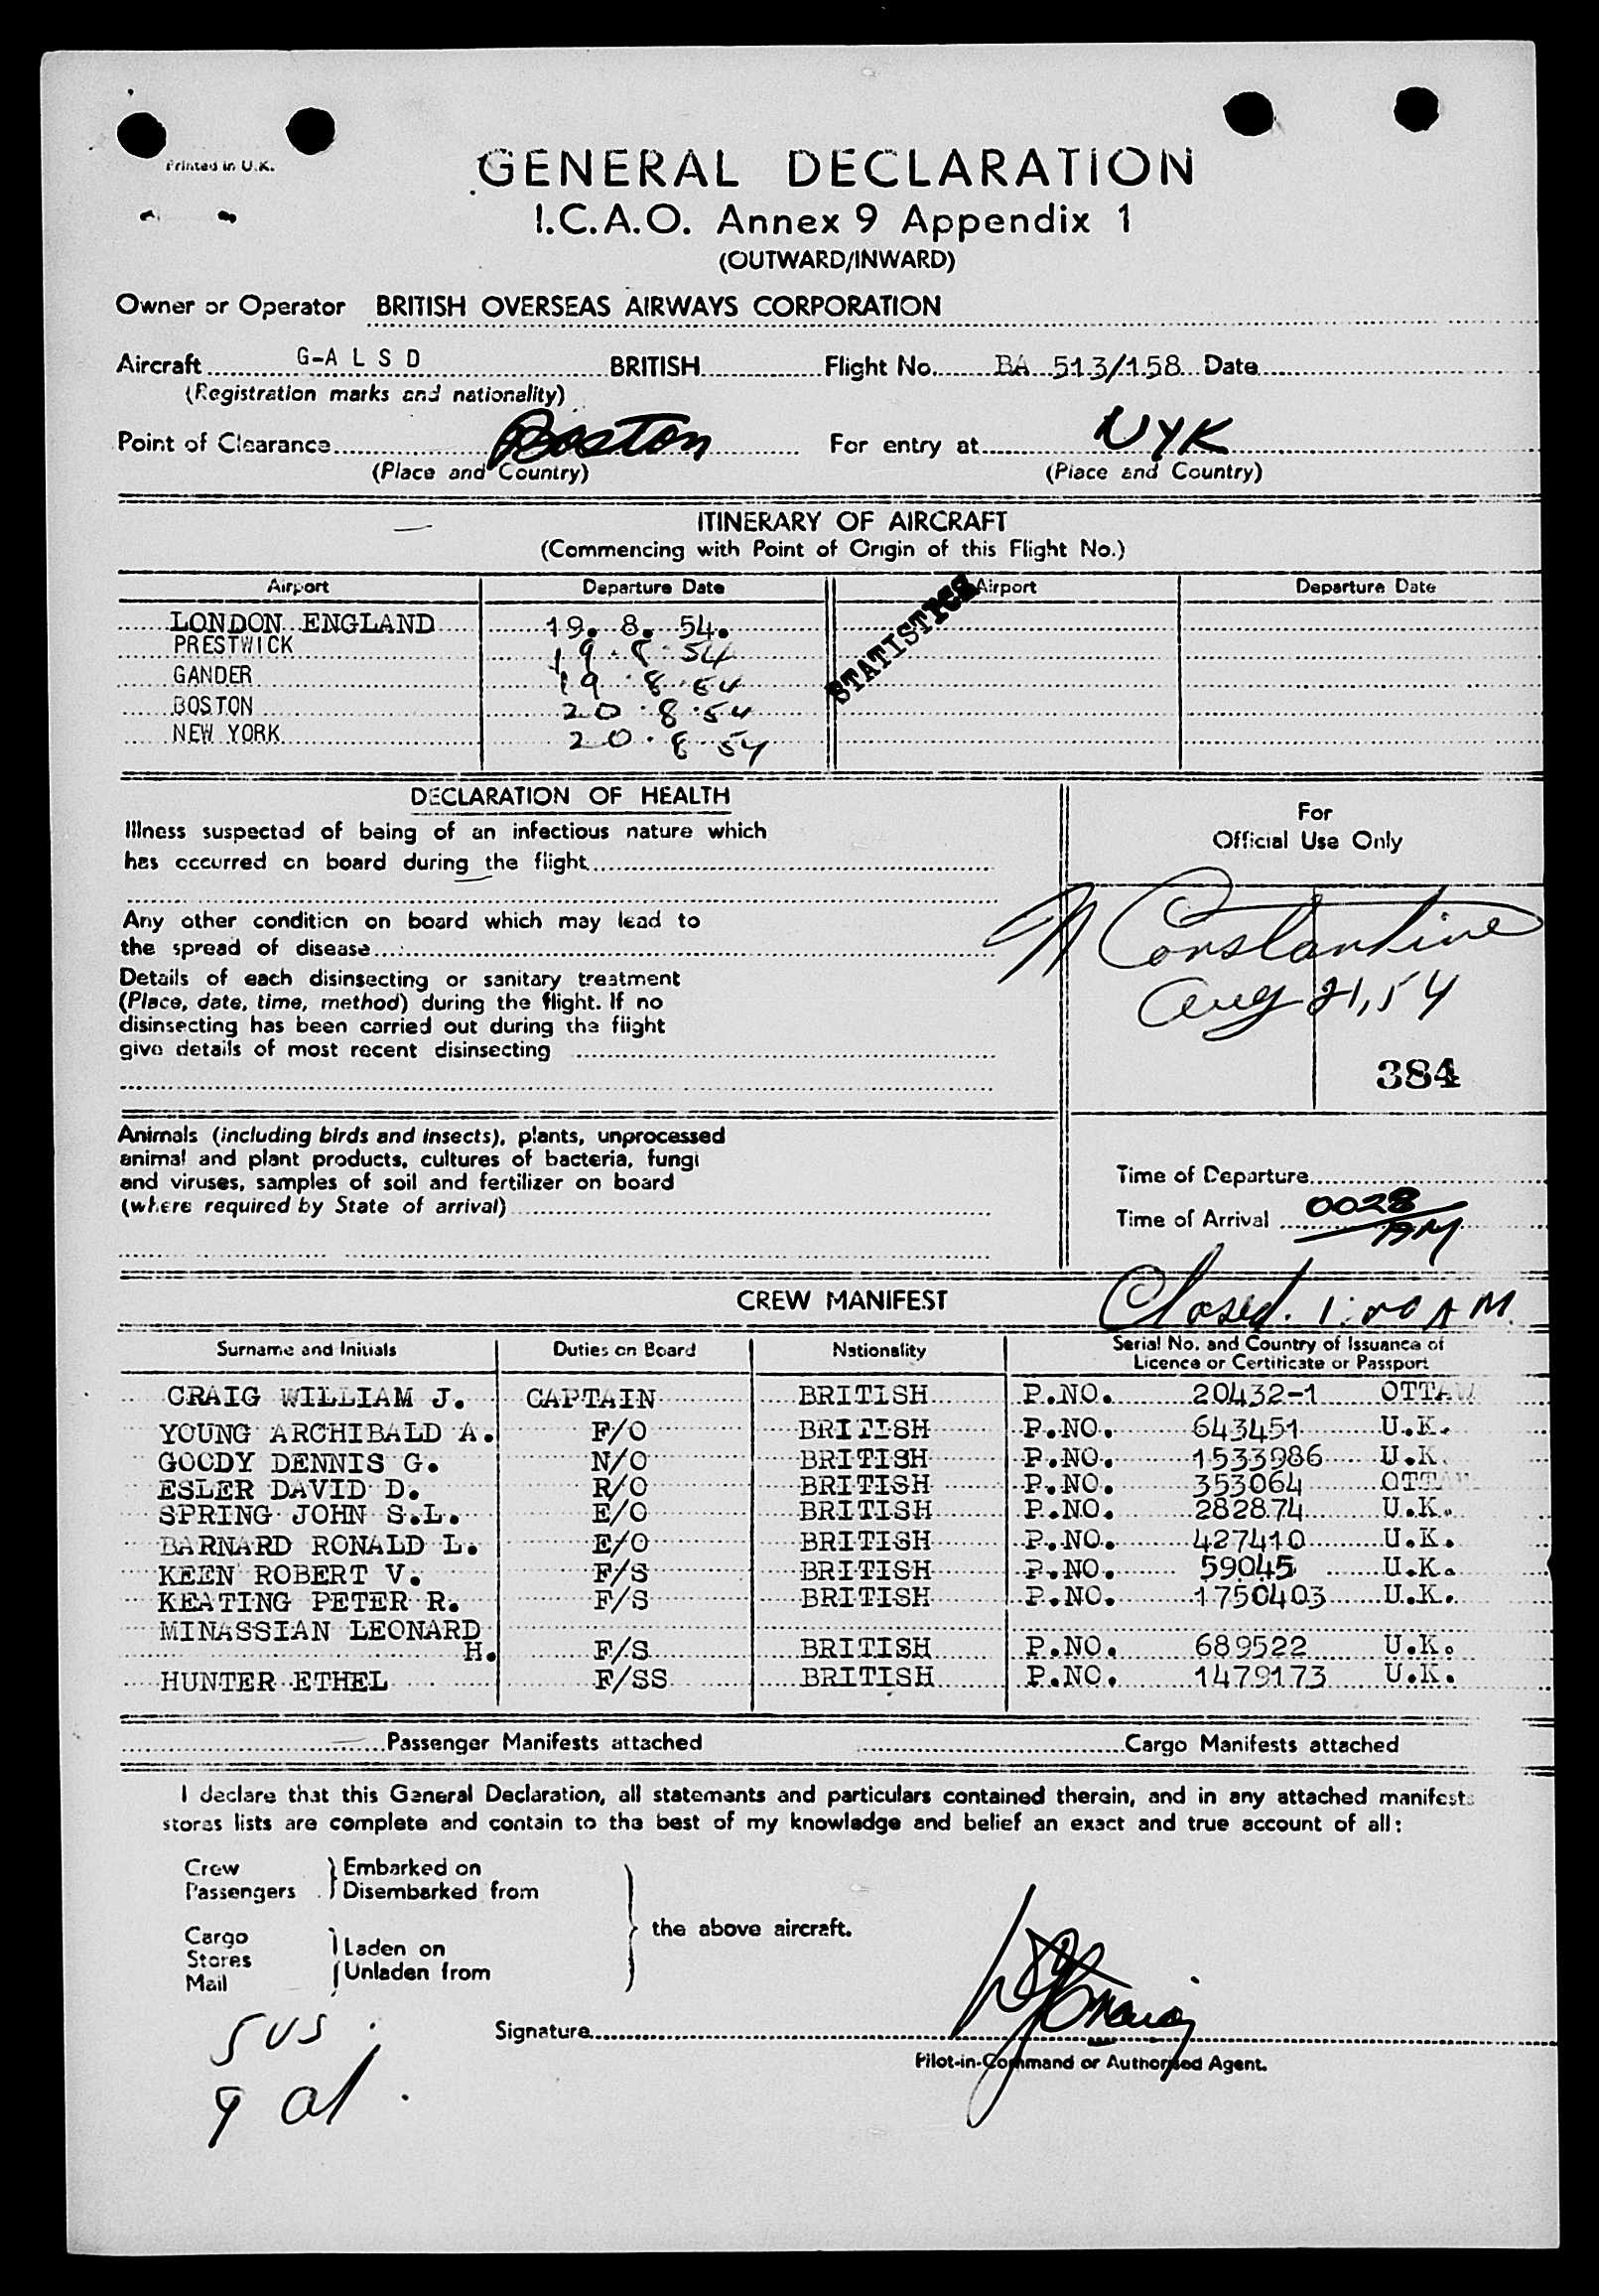 Printed in U.K.
GENERAL DECLARATION
I.C.A.O. Annex 9 Appendix 1
(OUTWARD/INWARD)
Owner or Operator BRITISH OVERSEAS AIRWAYS CORPORATION
Aircraft G-A L S D BRITISH Flight No. BA 513/158 Date
(Registration marks and nationality)
Point of Clearance Boston For entry at NYK
(Place and Country) (Place and Country)
ITINERARY OF AIRCRAFT
(Commencing with Point of Origin of this Flight No.)
Airport Departure Date Airport Departure Date
STATISTICS
LONDON ENGLAND 19. 8. 54.
PRESTWICK 19 . 8 . 54
GANDER 19 . 8 . 54
BOSTON 20 . 8 . 54
NEW YORK 20 . 8 . 54
DECLARATION OF HEALTH
Illness suspected of being of an infectious nature which
has occurred on board during the flight
Any other condition on board which may lead to
the spread of disease
Details of each disinsecting or sanitary treatment
(Place, date, time, method) during the flight. If no
disinsecting has been carried out during the flight
give details of most recent disinsecting
For
Official Use Only
N Constantine
Aug 21, 54
384
Animals (including birds and insects), plants, unprocessed
animal and plant products, cultures of bacteria, fungi
and viruses, samples of soil and fertilizer on board
(where required by State of arrival)
Time of Departure
Time of Arrival 0028
AM
CREW MANIFEST
Closed. 1:00 AM.
Surname and Initials Duties on Board Nationality Serial No. and Country of Issuance of
Licence or Certificate or Passport
CRAIG WILLIAM J. CAPTAIN BRITISH P.NO. 20432-1 OTTAW
YOUNG ARCHIBALD A. F/O BRITISH P.NO. 643451 U.K.
GOODY DENNIS G. N/O BRITISH P.NO. 1533986 U.K.
ESLER DAVID D. R/O BRITISH P.NO. 353064 OTTAW
SPRING JOHN S.L. E/O BRITISH P.NO. 282874 U.K.
BARNARD RONALD L. E/O BRITISH P.NO. 427410 U.K.
KEEN ROBERT V. F/S BRITISH P.NO. 59045 U.K.
KEATING PETER R. F/S BRITISH P.NO. 1750403 U.K.
MINASSIAN LEONARD
H. F/S BRITISH P.NO. 689522 U.K.
HUNTER ETHEL F/SS BRITISH P.NO. 1479173 U.K.
Passenger Manifests attached Cargo Manifests attached
I declare that this General Declaration, all statements and particulars contained therein, and in any attached manifests
stores lists are complete and contain to the best of my knowledge and belief an exact and true account of all:
Crew Embarked on
Passengers Disembarked from
the above aircraft.
Cargo
Stores Laden on
Mail Unladen from
5 US
9 al
Signature WJ Craig
Pilot-in-Command or Authorised Agent.